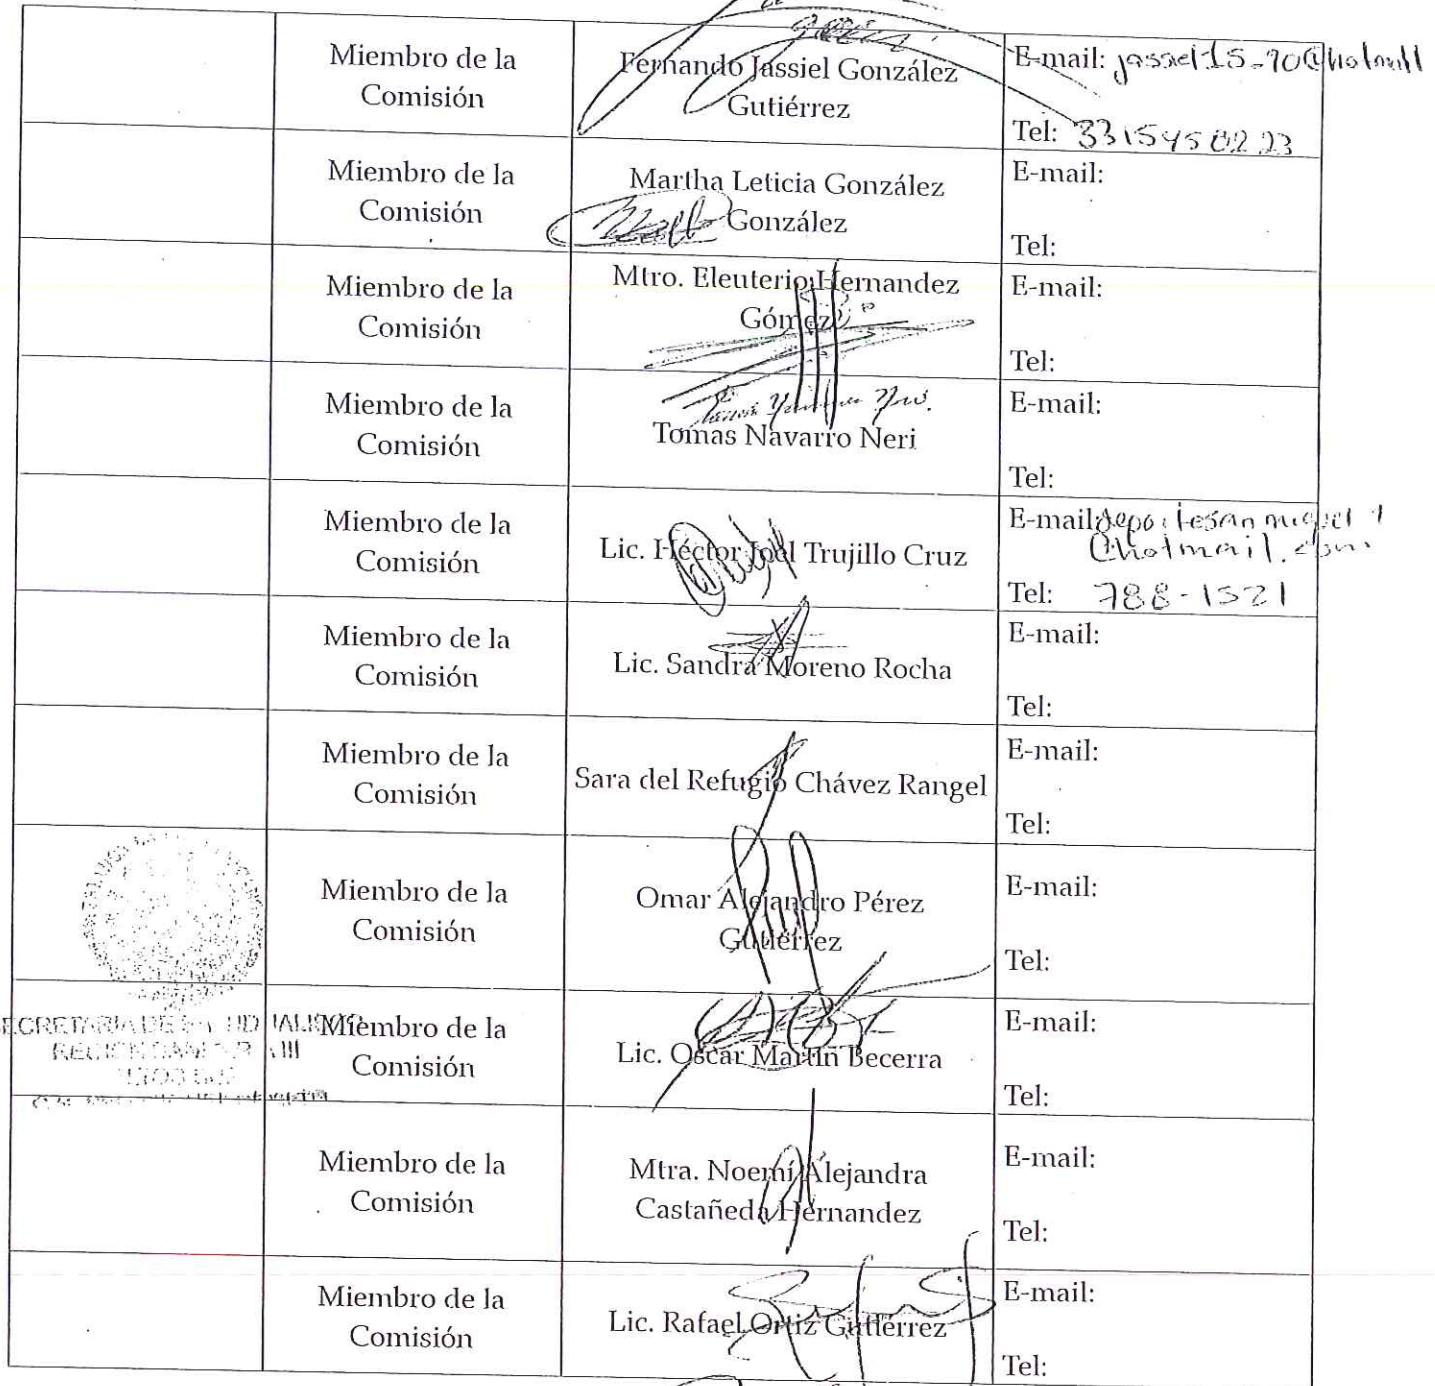 Miembro de la
Comisión
Fernando Jassiel González
Gutiérrez
E-mail: jassiel15-90@hotmail
Tel: 3315450223
Miembro de la
Comisión
Martha Leticia González
González
E-mail:
Tel:
Miembro de la
Comisión
Mtro. Eleuterio Hernandez
Gómez
E-mail:
Tel:
Miembro de la
Comisión
Tomas Navarro Neri
E-mail:
Tel:
Miembro de la
Comisión
Lic. Héctor Joel Trujillo Cruz
E-mail: deportesanmiguel1
@hotmail.com
Tel: 788-1521
Miembro de la
Comisión
Lic. Sandra Moreno Rocha
E-mail:
Tel:
Miembro de la
Comisión
Sara del Refugio Chávez Rangel
E-mail:
Tel:
Miembro de la
Comisión
Omar Alejandro Pérez
Gutiérrez
E-mail:
Tel:
SECRETARIA DE SALUD JALISCO
REGION SANITARIA III
Miembro de la
Comisión
Lic. Oscar Martín Becerra
E-mail:
Tel:
Miembro de la
Comisión
Mtra. Noemí Alejandra
Castañeda Hernandez
E-mail:
Tel:
Miembro de la
Comisión
Lic. Rafael Ortiz Gutiérrez
E-mail:
Tel: